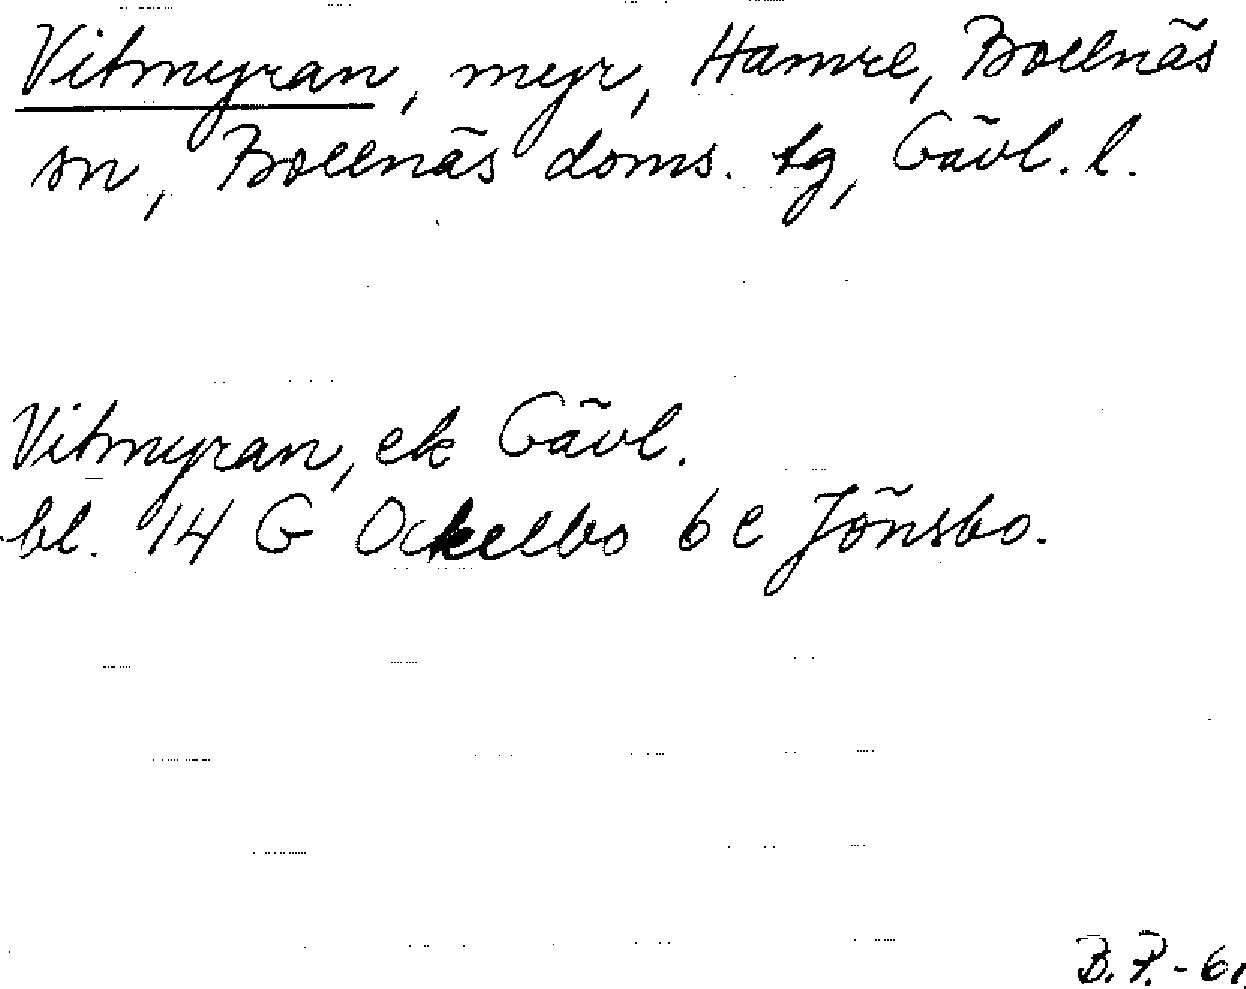 Vitmyran, myr, Hamre, Bollnäs
sn, Bollnäs doms. tg, Gävl. l.
Vitmyran, ek Gävl.
bl. 14 G Ockelbo 6 e Jönsbo.
B. P. - 61.